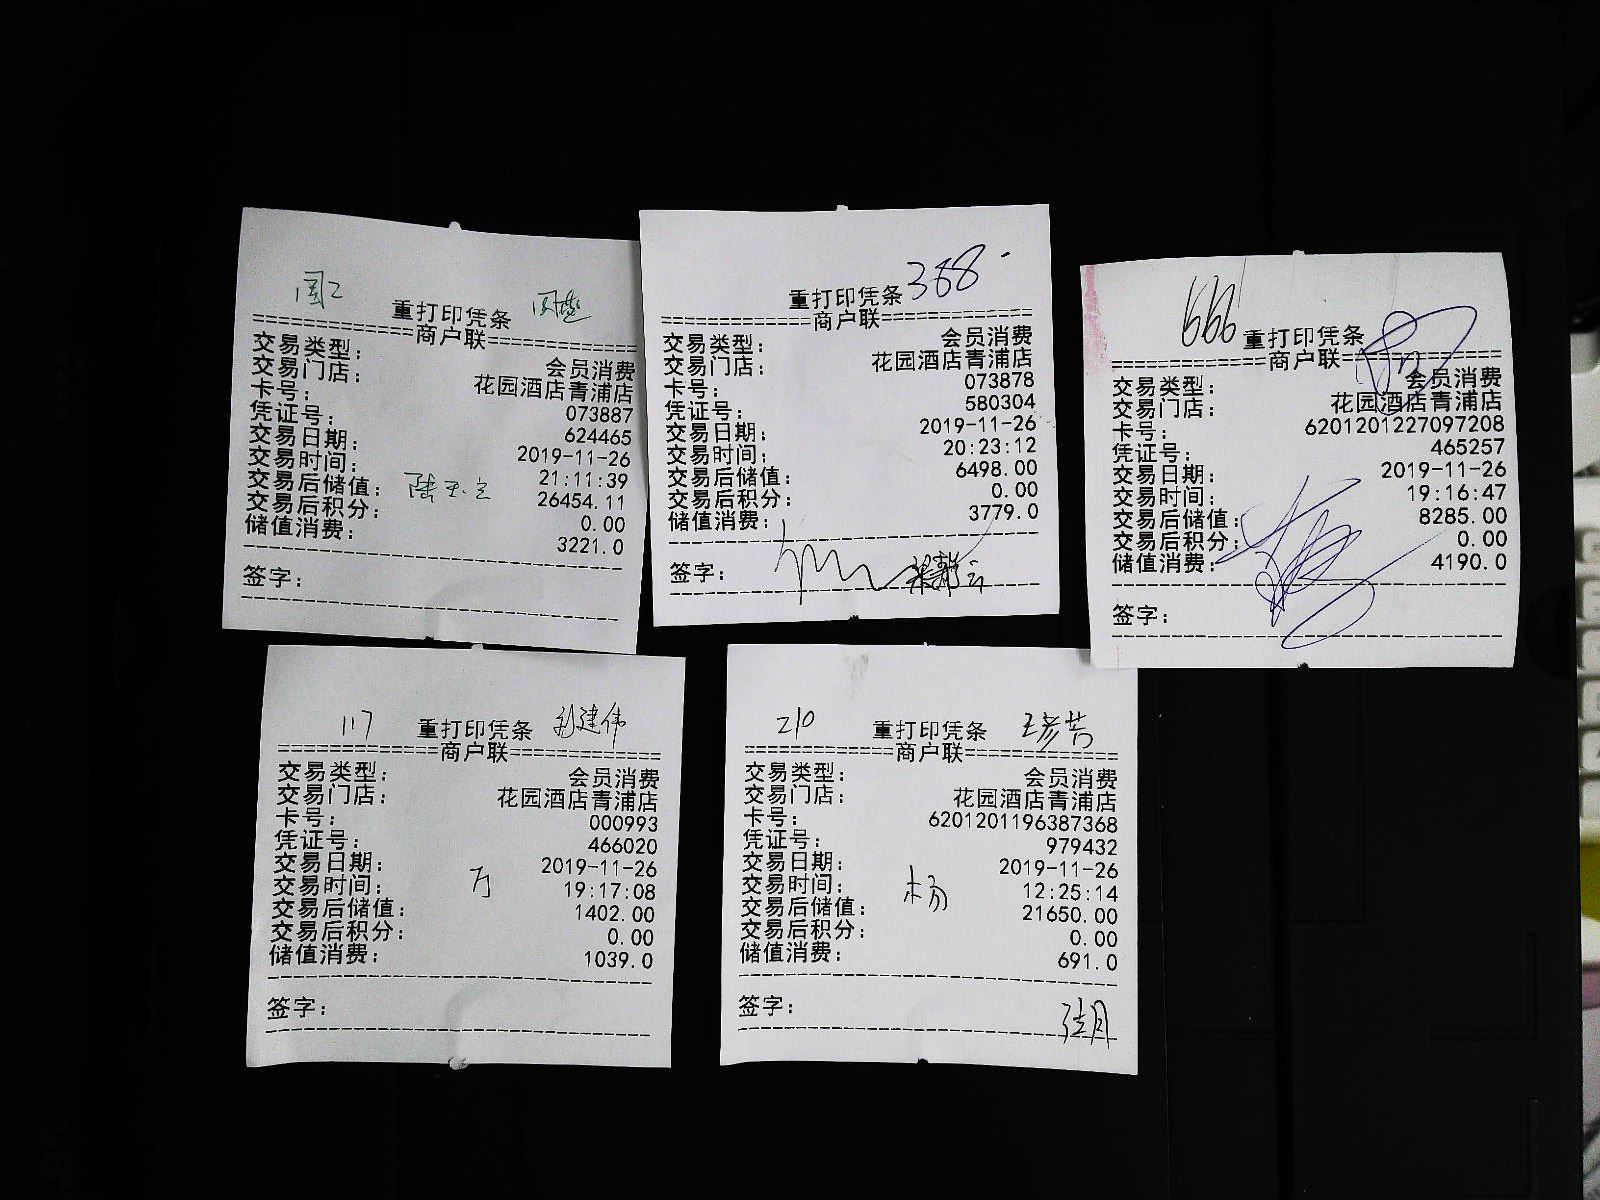 重打印凭条
商户联
交易类型： 会员消费
交易门店： 花园酒店青浦店
卡号： 073887
凭证号： 624465
交易日期： 2019-11-26
交易时间： 21:11:39
交易后储值： 26454.11
交易后积分： 0.00
储值消费： 3221.0
签字：
388
重打印凭条
商户联
交易类型： 会员消费
交易门店： 花园酒店青浦店
卡号： 073878
凭证号： 580304
交易日期： 2019-11-26
交易时间： 20:23:12
交易后储值： 6498.00
交易后积分： 0.00
储值消费： 3779.0
签字：
666
重打印凭条
商户联
交易类型： 会员消费
交易门店： 花园酒店青浦店
卡号： 6201201227097208
凭证号： 465257
交易日期： 2019-11-26
交易时间： 19:16:47
交易后储值： 8285.00
交易后积分： 0.00
储值消费： 4190.0
签字：
117 重打印凭条
商户联
交易类型： 会员消费
交易门店： 花园酒店青浦店
卡号： 000993
凭证号： 466020
交易日期： 2019-11-26
交易时间： 19:17:08
交易后储值： 1402.00
交易后积分： 0.00
储值消费： 1039.0
签字：
210 重打印凭条 王彦芳
商户联
交易类型： 会员消费
交易门店： 花园酒店青浦店
卡号： 6201201196387368
凭证号： 979432
交易日期： 2019-11-26
交易时间： 12:25:14
杨
交易后储值： 21650.00
交易后积分： 0.00
储值消费： 691.0
签字：